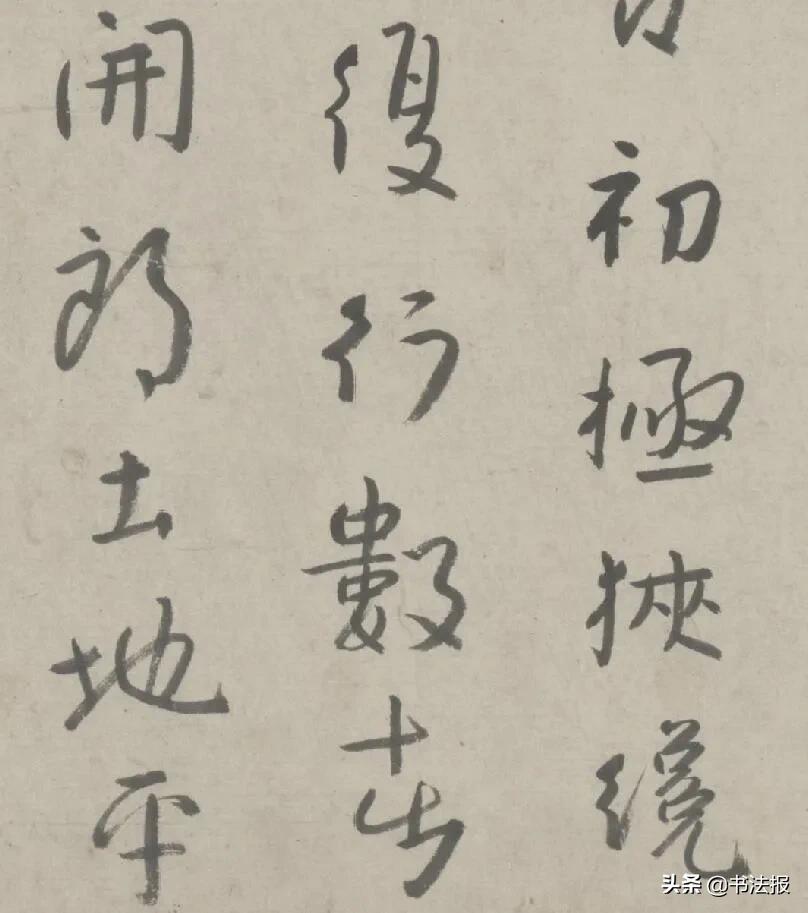 初極狹纔
復行數十步
開朗土地平
头条 @书法报